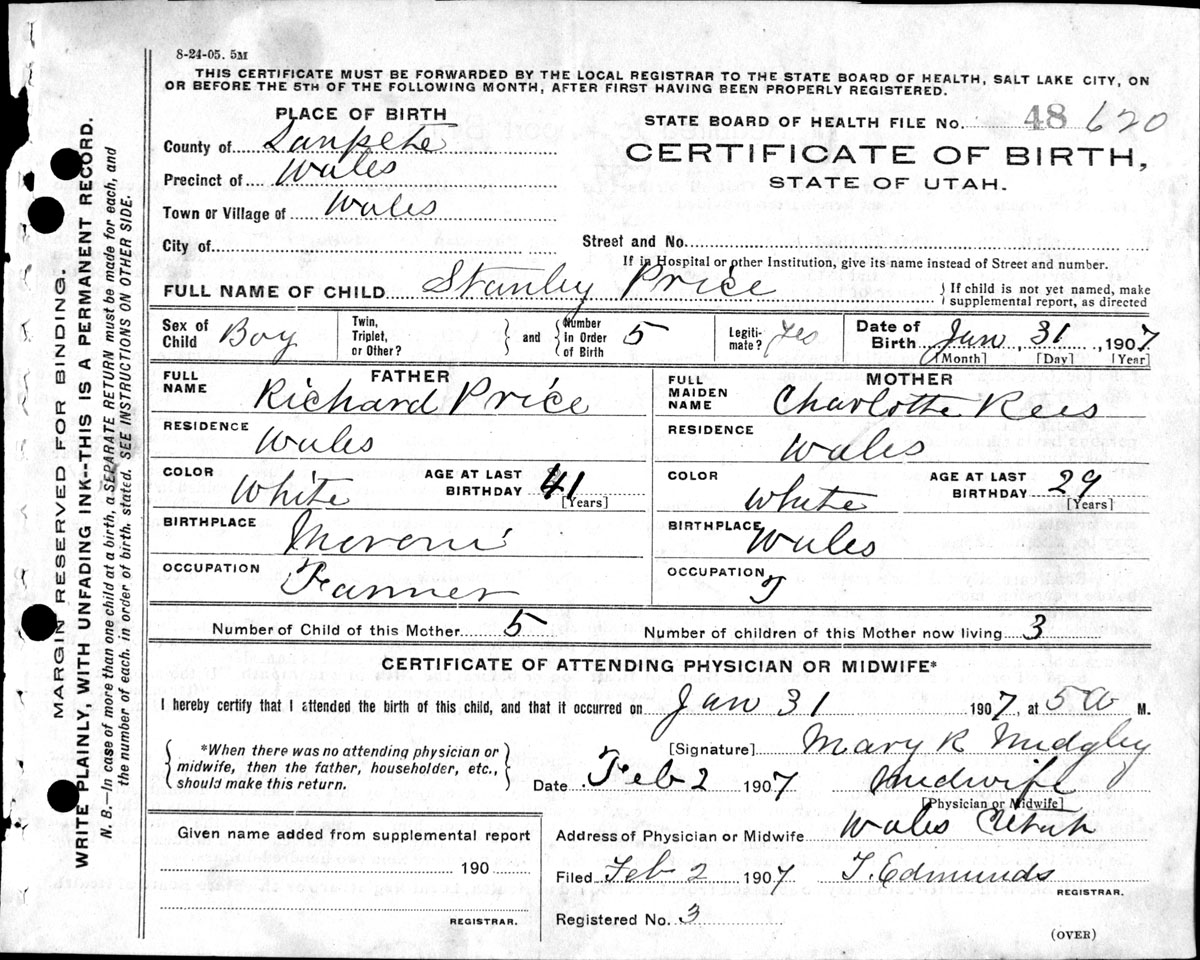 8-24-05. 5M
THIS CERTIFICATE MUST BE FORWARDED BY THE LOCAL REGISTRAR TO THE STATE BOARD OF HEALTH, SALT LAKE CITY, ON
OR BEFORE THE 5TH OF THE FOLLOWING MONTH, AFTER FIRST HAVING BEEN PROPERLY REGISTERED.
PLACE OF BIRTH
County of Sanpete
Precinct of Wales
Town or Village of Wales
City of
STATE BOARD OF HEALTH FILE No. 48 620
CERTIFICATE OF BIRTH,
STATE OF UTAH.
Street and No.
If in Hospital or other Institution, give its name instead of Street and number.
FULL NAME OF CHILD Stanley Price } If child is not yet named, make supplemental report, as directed
Sex of Child Boy Twin, Triplet, or Other? } and { Number in Order of Birth 5 Legiti- mate? Yes Date of Birth Jan, 31, 1907 [Month] [Day] [Year]
FATHER
FULL NAME Richard Price
RESIDENCE Wales
COLOR White AGE AT LAST BIRTHDAY 41 [Years]
BIRTHPLACE Moroni
OCCUPATION Farmer
MOTHER
FULL MAIDEN NAME Charlotte Rees
RESIDENCE Wales
COLOR White AGE AT LAST BIRTHDAY 29 [Years]
BIRTHPLACE Wales
OCCUPATION
Number of Child of this Mother 5 Number of children of this Mother now living 3
CERTIFICATE OF ATTENDING PHYSICIAN OR MIDWIFE*
I hereby certify that I attended the birth of this child, and that it occurred on Jan 31 1907, at 5 a M.
{ *When there was no attending physician or
midwife, then the father, householder, etc.,
should make this return. }
[Signature] Mary R Midgley
Date Feb 2 1907 Midwife
[Physician or Midwife]
Given name added from supplemental report
190
REGISTRAR.
Address of Physician or Midwife Wales Utah
Filed Feb 2 1907 T. Edmunds
REGISTRAR.
Registered No. 3
(OVER)
MARGIN RESERVED FOR BINDING.
WRITE PLAINLY, WITH UNFADING INK--THIS IS A PERMANENT RECORD.
N. B.—In case of more than one child at a birth, a SEPARATE RETURN must be made for each, and
the number of each, in order of birth, stated. SEE INSTRUCTIONS ON OTHER SIDE.